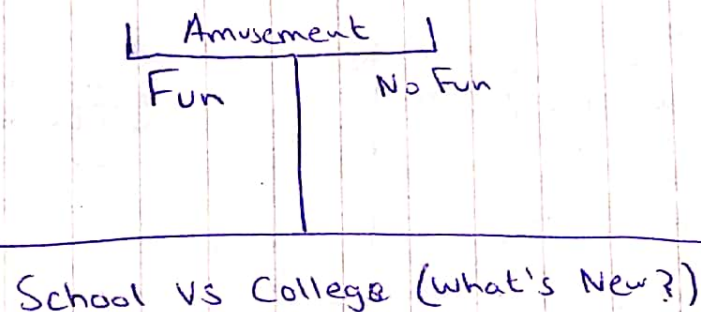 Amusement
Fun No Fun
School Vs College (What's New?)